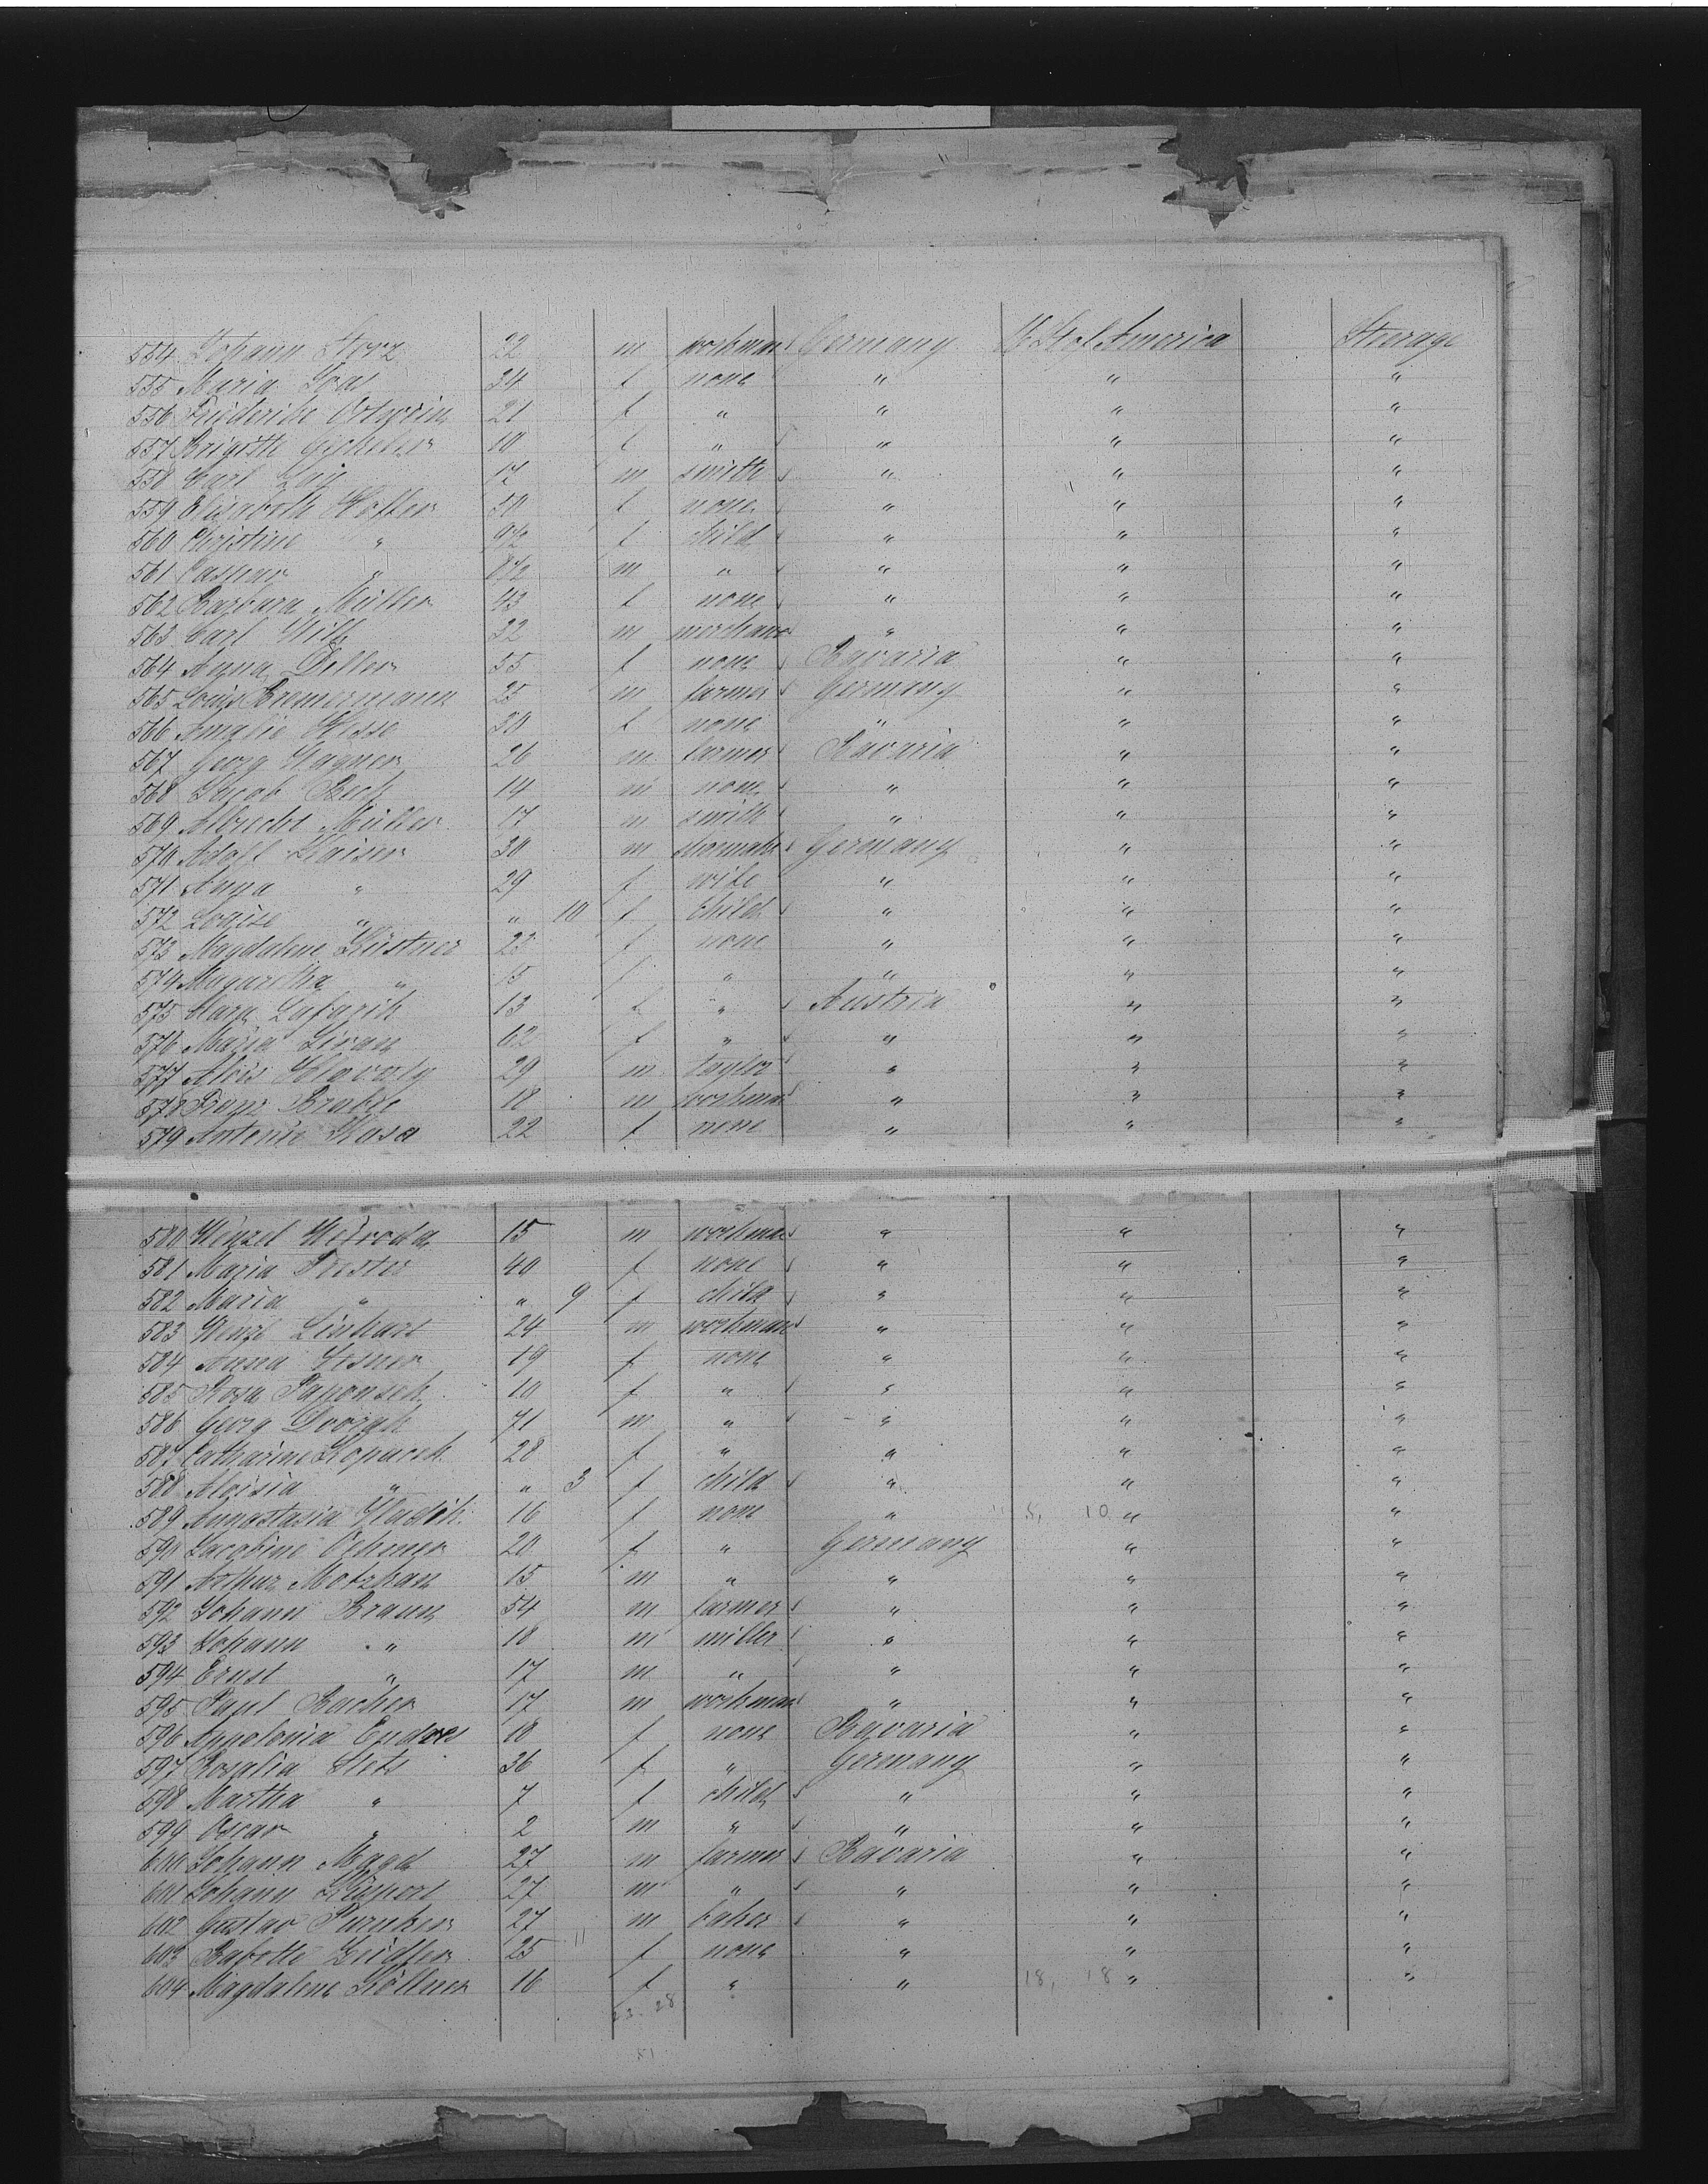 554 Johann Storz 22 m workman Germany U. St. of America Steerage
555 Maria 24 f none " " "
556 Friederike 21 f " " " "
557 Brigitte 10 f " " " "
558 Carl 17 m smith " " "
559 Elisabeth Hoffer 50 f none " " "
560 Christine " 9 1/2 f child " " "
561 Caspar " 8 1/2 m " " " "
562 Barbara Müller 43 f none " " "
563 Carl Wilk 32 m merchant " " "
564 Anna Deller 55 f none Bavaria " "
565 Louis Bremermann 25 m farmer Germany " "
566 Amalie Hesse 30 f none " " "
567 Georg Wagner 26 m farmer Bavaria " "
568 Jacob Beck 14 m none " " "
569 Albrecht Müller 17 m smith " " "
570 Adolf Kaiser 30 m shoemaker Germany " "
571 Anna " 29 f wife " " "
572 Louise " " 10 f child " " "
573 Magdalene Küstner 23 f none " " "
574 Magaretha " 15 f " " " "
575 13 f " Austria " "
576 Maria 62 f " " " "
577 Alois 29 m taylor " " "
578 Franz 18 m workman " " "
579 Antonie Kasa 22 f none " " "
580 Wenzel 15 m workman " " "
581 Maria 40 f none " " "
582 Maria " " 9 f child " " "
583 Wenzl Linhart 24 m workman " " "
584 Anna 19 f none " " "
585 Rosa 10 f " " " "
586 Georg 71 m " " " "
587 Catharine Kopacek 28 f " " " "
588 Aloisia " " 3 f child " " "
589 Annastasia 16 f none " 5, 10 " "
590 Jacobine 20 f " Germany " "
591 Arthur Motzkau 15 m " " " "
592 Johann Braun 54 m farmer " " "
593 Johann " 18 m miller " " "
594 Ernst " 17 m " " " "
595 Paul Bacher 17 m workman " " "
596 Appolonia Endres 18 f none Bavaria " "
597 Rosalia 36 f " Germany " "
598 Martha " 7 f child " " "
599 Oscar " 2 m " " " "
600 Johann 27 m farmer Bavaria " "
601 Johann 27 m " " " "
602 Gustav 27 m baker " " "
603 Babette 25 11 f none " " "
604 Magdalene Köllner 16 f " " 18, 18 " "
23. 28
51